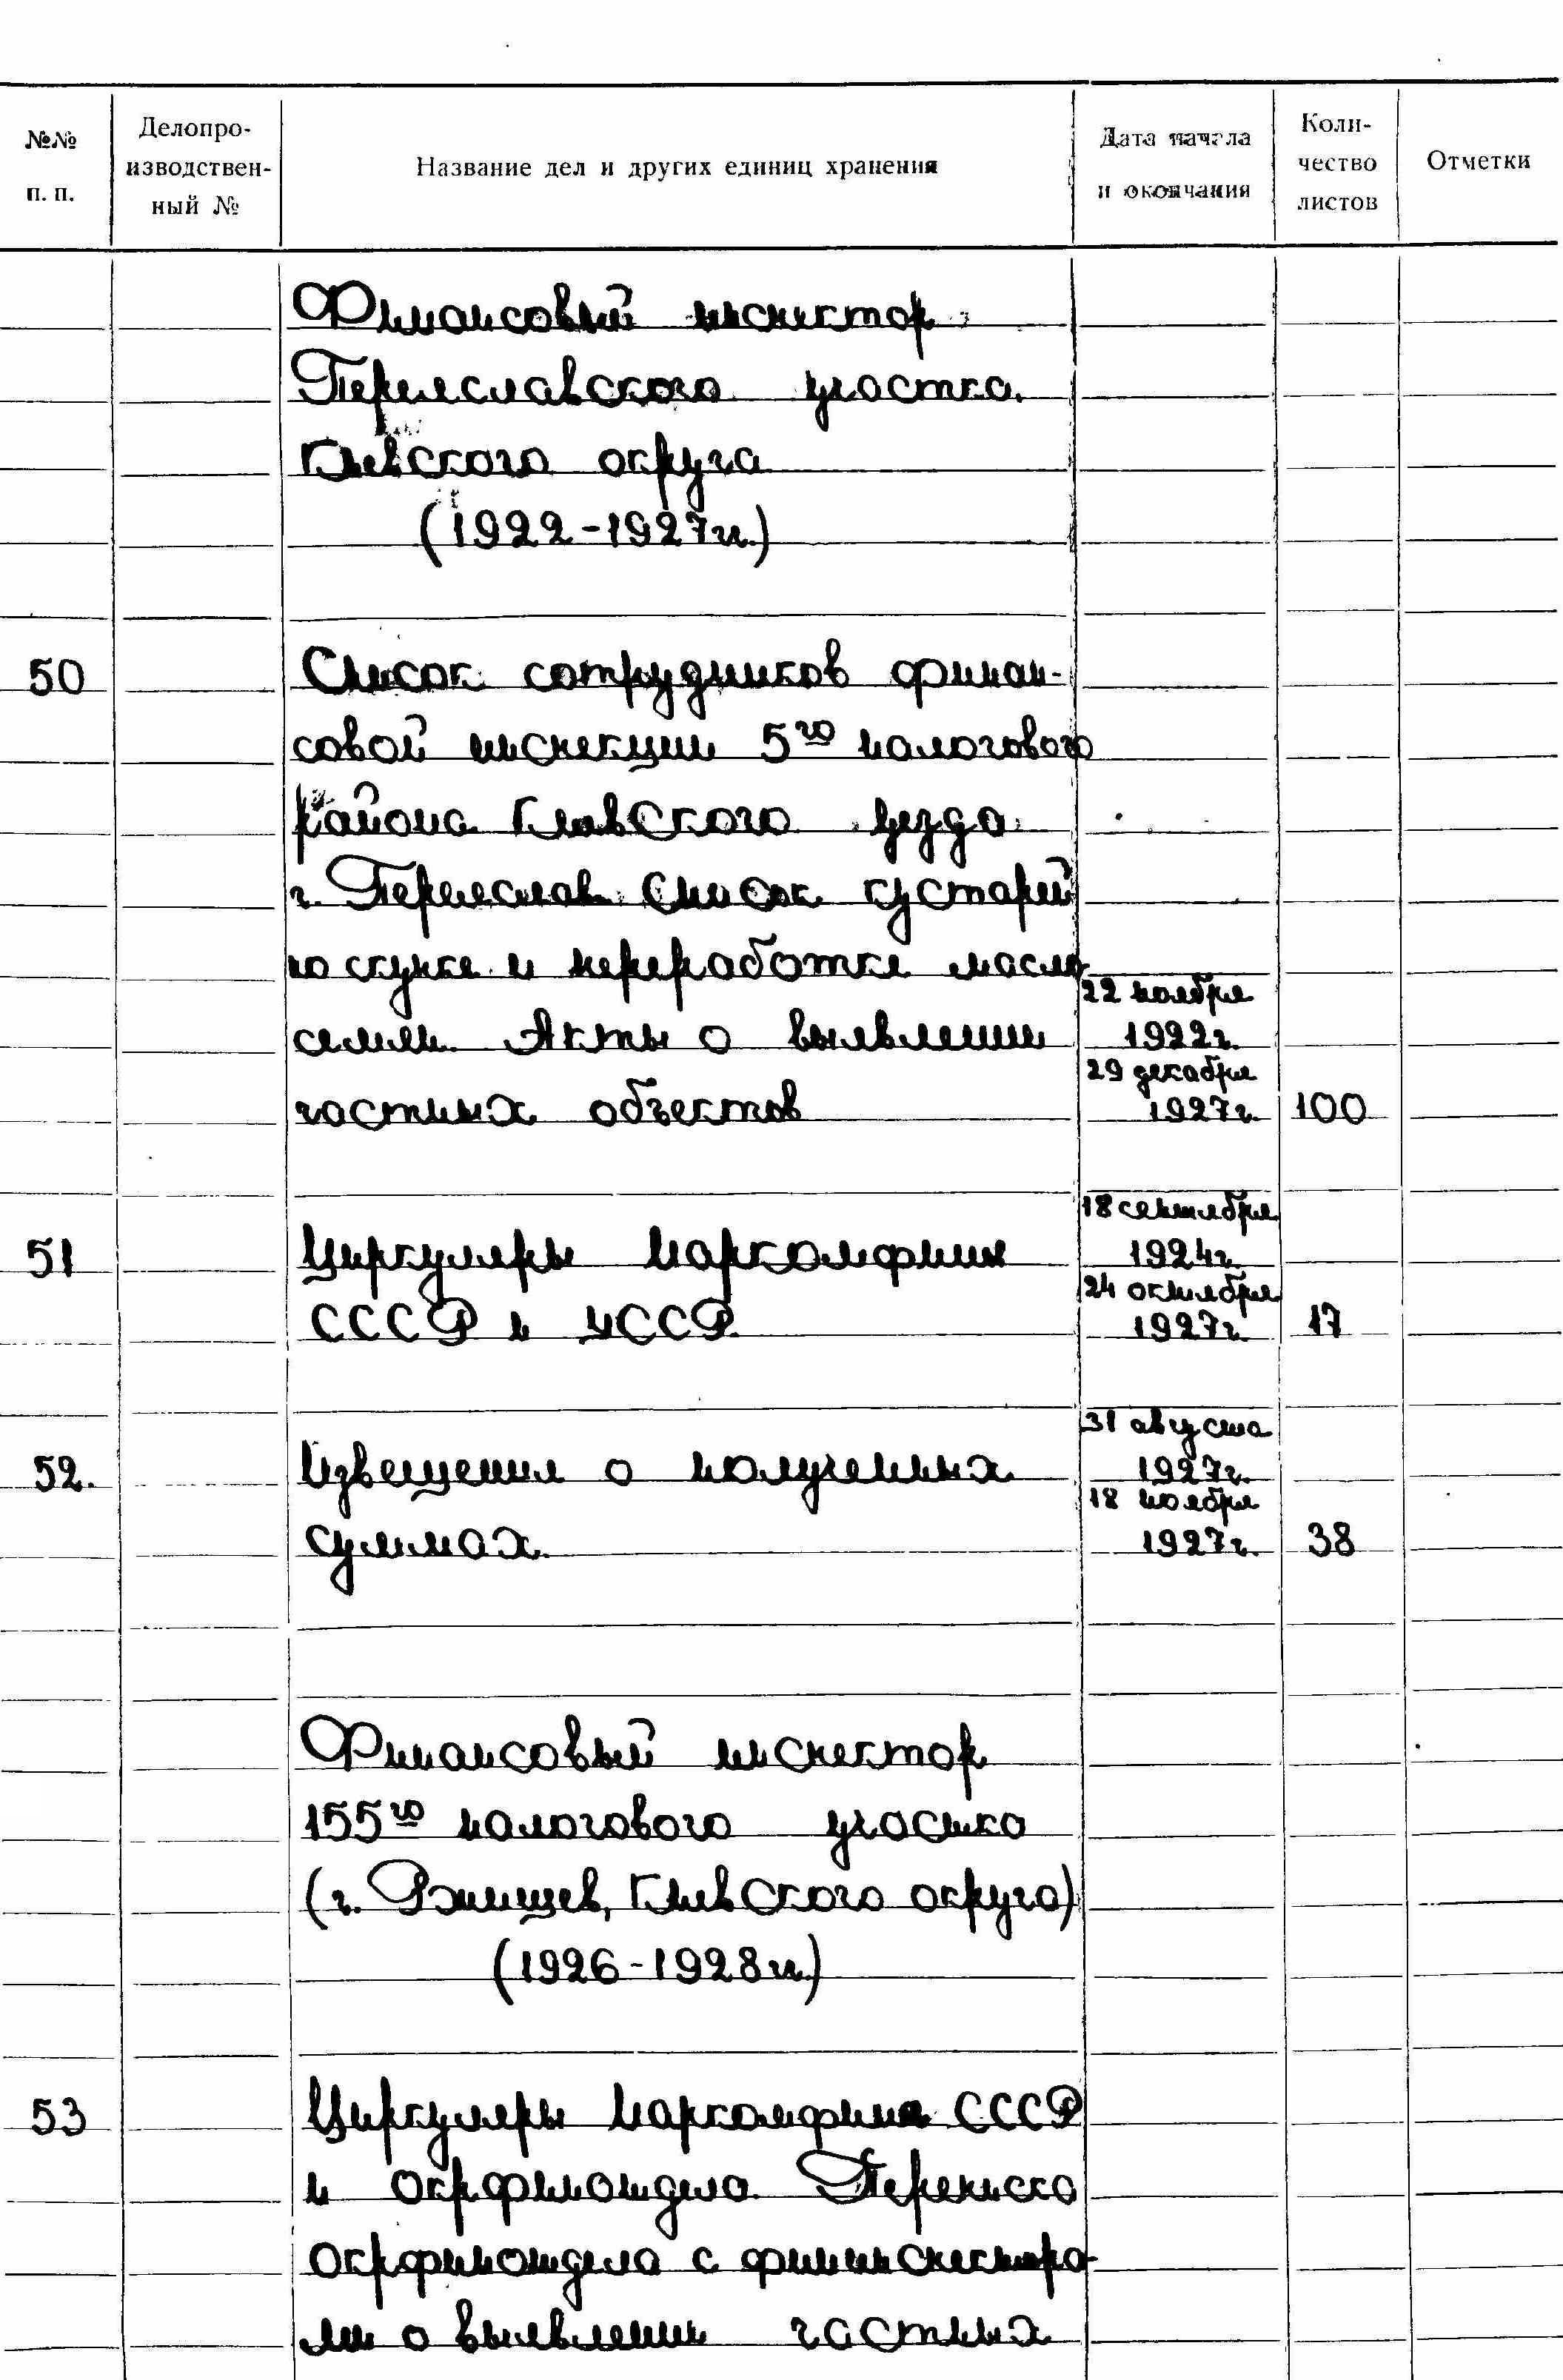 №№ п. п.
Делопро-
изводствен-
ный №
Название дел и других единиц хранения
Дата начала
и окончания
Коли-
чество
листов
Отметки
Финансовый инспектор
Переяславского участка
Киевского округа
(1922-1927гг.)
50
Список сотрудников финан-
совой инспекции 5го налогового
района Киевского уезда
г. Переяслав. Список кустарей
по скупке и переработке масло
семян. Акты о выявлении
частных объектов
22 ноября
1922г.
29 декабря
1927г.
100
51
Циркуляры Наркомфина
СССР и УССР.
18 сентября
1924г.
24 октября
1927г.
17
52.
Извещения о полученных
суммах.
31 августа
1927г.
18 ноября
1927г.
38
Финансовый инспектор
155го налогового участка
(г. Ржищев, Киевского округа)
(1926-1928гг.)
53
Циркуляры Наркомфина СССР
и Окрфинотдела. Переписка
Окрфинотдела с фининспектора-
ми о выявлении частных